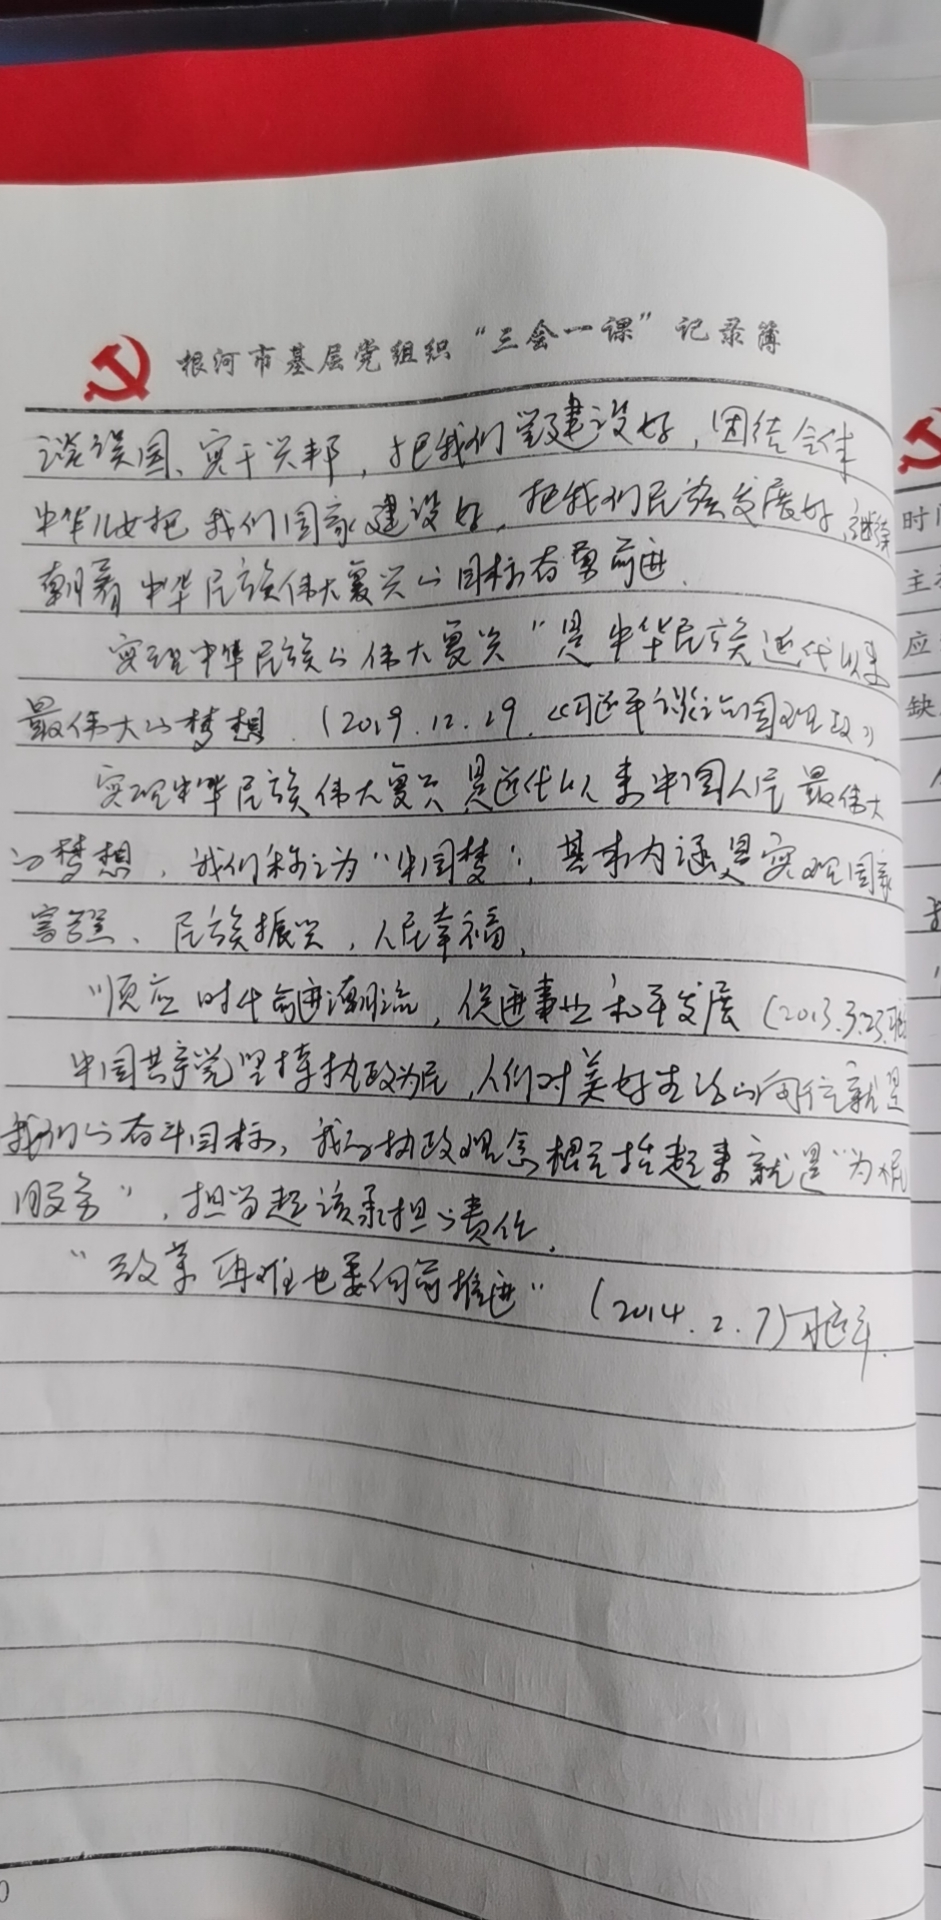 根河市基层党组织“三会一课”记录簿
谈误国、实干兴邦，把我们党建设好，团结全体
中华儿女把我们国家建设好，把我们民族发展好，继续
朝着中华民族伟大复兴的目标奋勇前进.
实现中华民族的伟大复兴"是中华民族近代以来
最伟大的梦想.（2019.12.29.《习近平谈治国理政》
实现中华民族伟大复兴是近代以来中国人民最伟大
的梦想，我们称之为“中国梦”，基本内涵是实现国家
富强、民族振兴，人民幸福，
“顺应时代前进潮流，促进事业和平发展（2013.3.23.习
中国共产党坚持执政为民，人们对美好生活的向往就是
我们的奋斗目标，我的执政理念概括起来就是“为人民
服务”，担当起该承担的责任.
“改革再难也要向前推进”（2014.2.7）习近平.
时间
主
应
缺
0